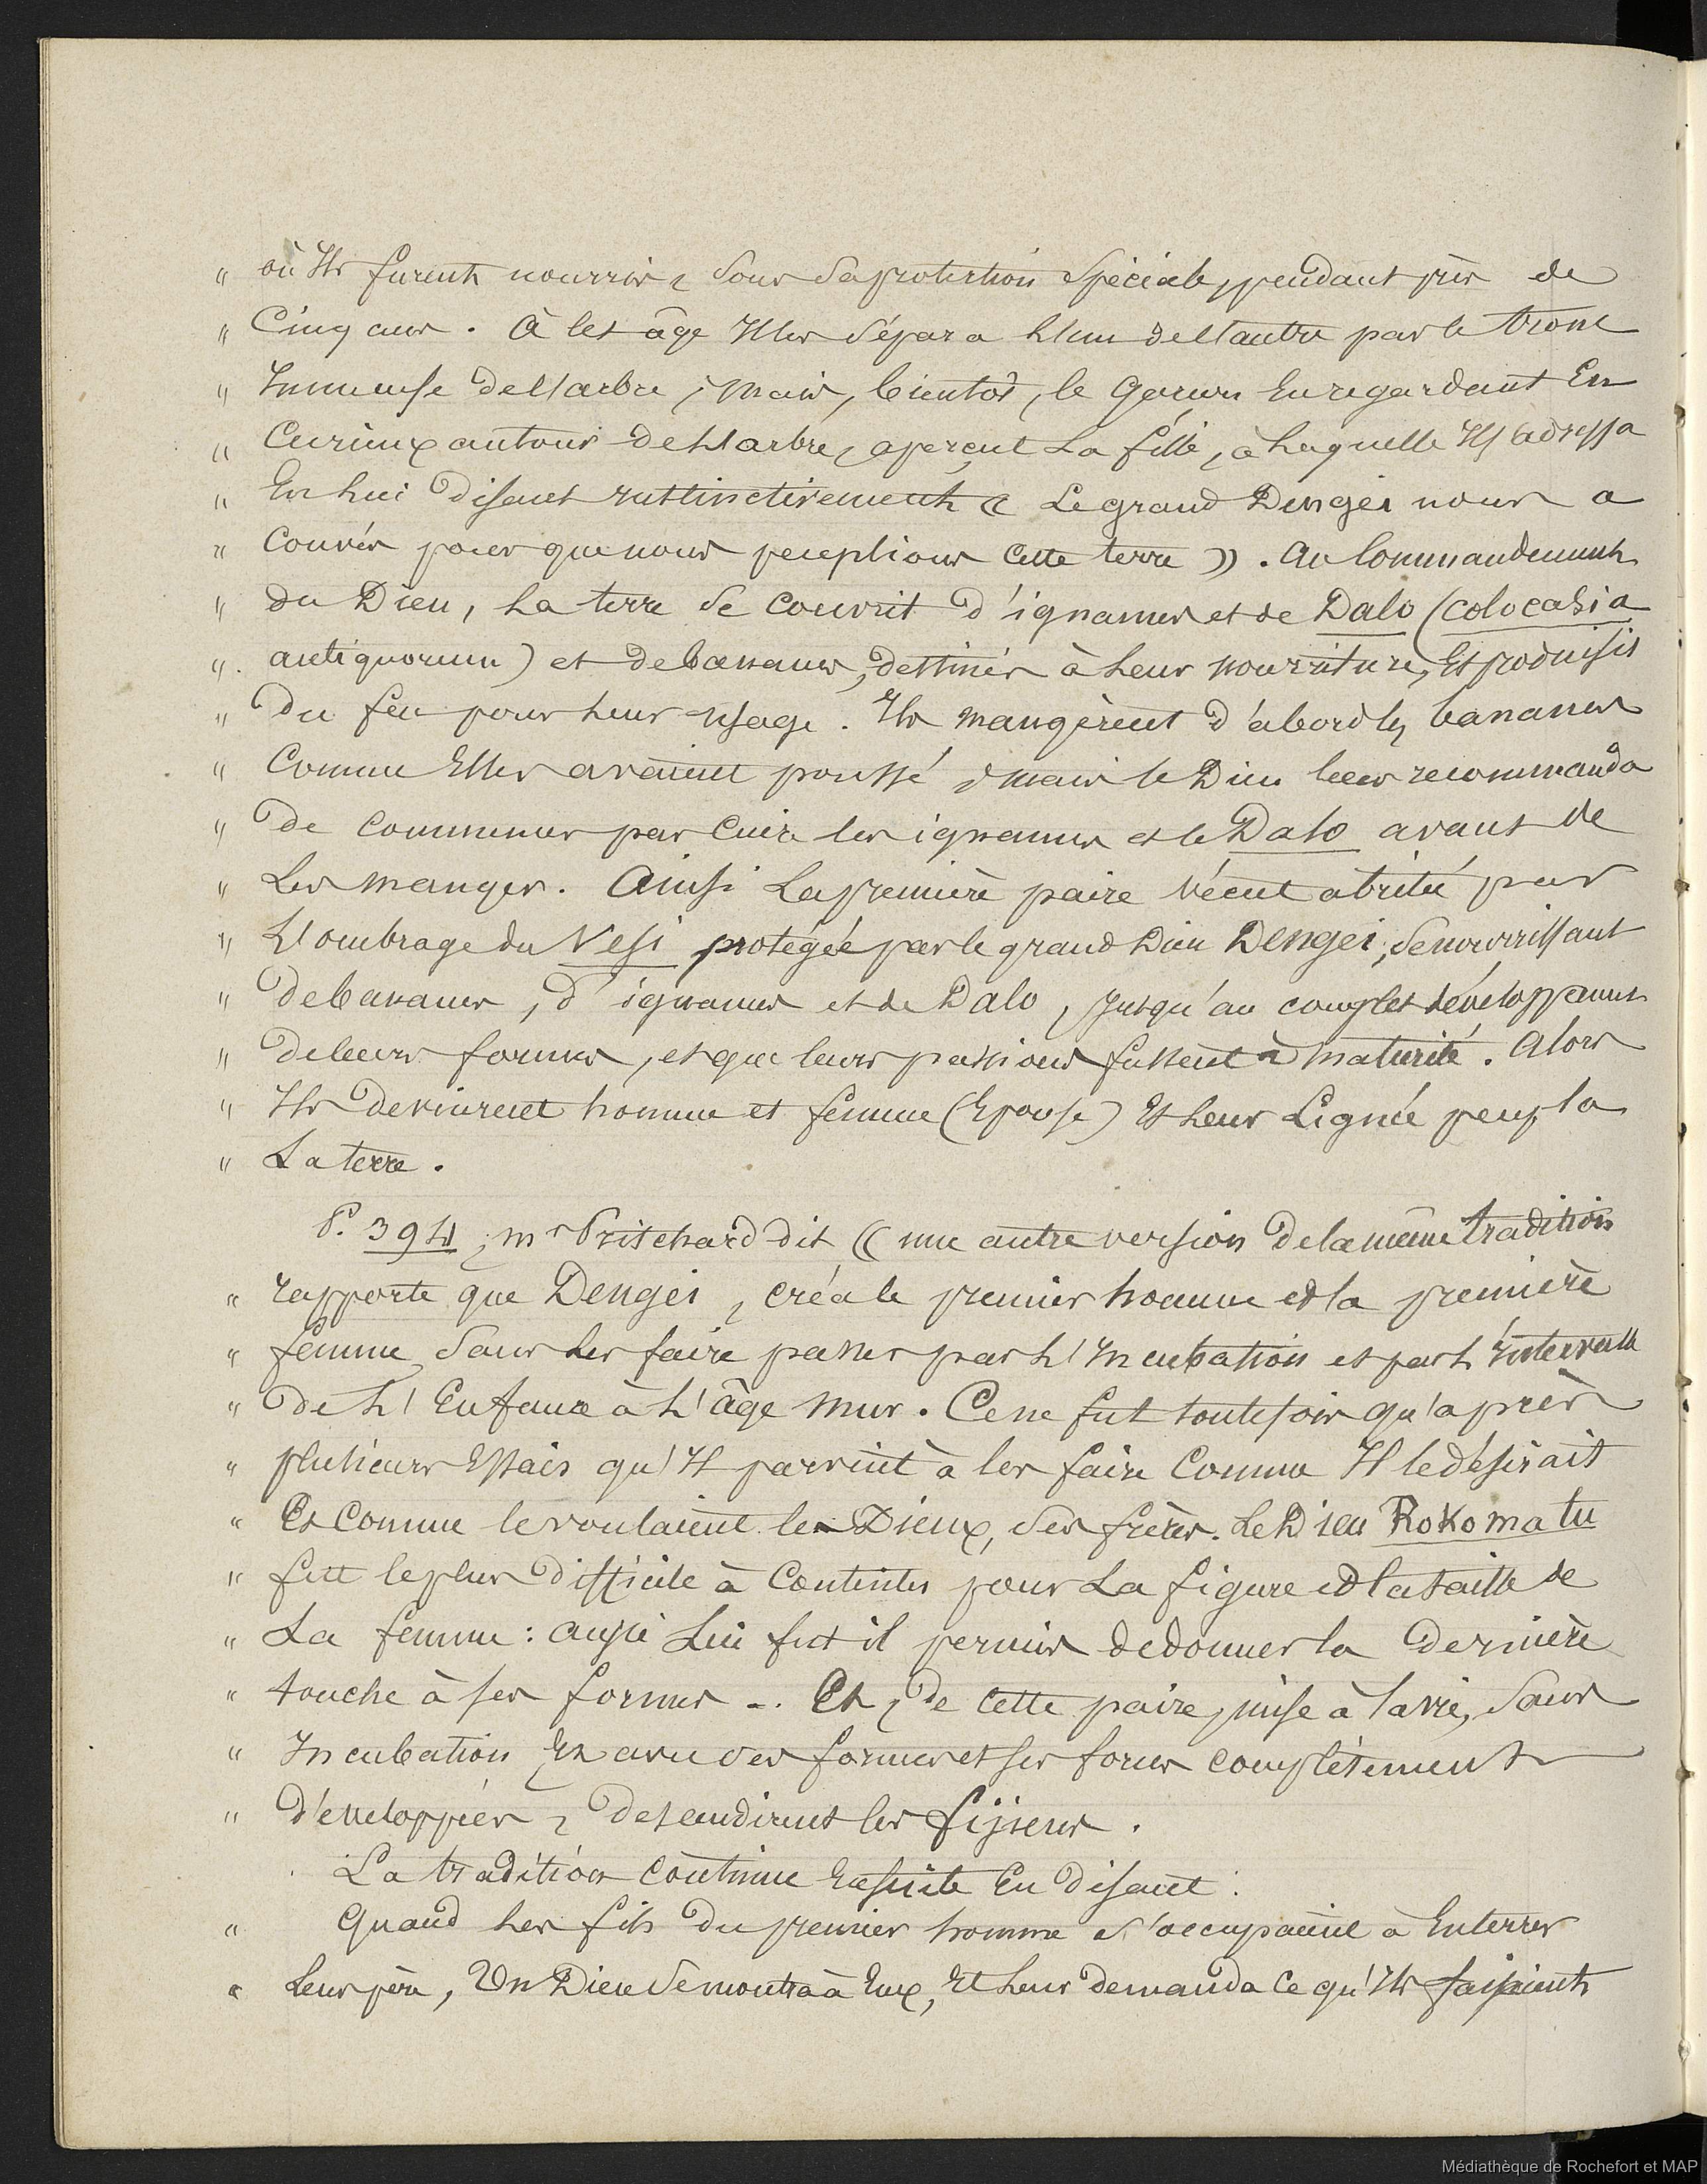 " où Ils furent nourris, sous sa protection spéciale, pendant près de
" Cinq ans. À cet âge Il les sépara l'un de l'autre par le tronc
" Immense de l'arbre ; mais, bientôt, le garçon En regardant En
" Curieux autour de l'arbre, aperçut La fille, à laquelle Il s'adressa
" En lui disant instinctivement « Le grand Dengei nous a
" Couvés pour que nous peuplions cette terre ». Au Commandement
" du Dieu, la terre se couvrit d'ignames et de Dalo (colocasia
" antiquorum) et de bananes, destinés à leur nourriture, Et produisit
" Du feu pour leur usage. Ils mangèrent d'abord les bananes
" Comme Elles avaient poussé ; mais le Dieu leur recommanda
" De commencer par Cuire les ignames et le Dalo avant de
" Les manger. Ainsi La première paire vécut abritée par
" L'ombrage du Vesi protégée par le grand Dieu Dengei, se nourrissant
" De bananes, d'ignames et de Dalo, jusqu'au complet développement
" De leurs formes, et que leurs passions fussent à maturité. Alors
" Ils devinrent homme et femme (Epouse) Et leur Lignée peupla
" La terre.
P. 394, mr Pritchard dit « une autre version de la même tradition
" rapporte que Dengei, créa le premier homme et la première
" femme sans les faire passer par l'Incubation et par l'Intervalle
" De l'Enfance à l'âge mur. Ce ne fut toutefois qu'après
" plusieurs Essais qu'Il parvint à les faire Comme Il le désirait
" Et comme le voulaient les Dieux, ses frères. Le Dieu Rokomatu
" fut le plus difficile à Contenter pour La figure et la taille de
" La femme : aussi Lui fut il permis de donner la dernière
" touche à ses formes -. Et, de cette paire, mise à la vie, sans
" Incubation Et avec ses formes et ses forces complètement
" développées, descendirent les fijiens.
La tradition continue Ensuite En disant :
" Quand les fils du premier homme s'occupaient à Enterrer
" Leur père, Un Dieu se montra à Eux, Et leur demanda ce qu'Ils faisaient
Médiathèque de Rochefort et MAP